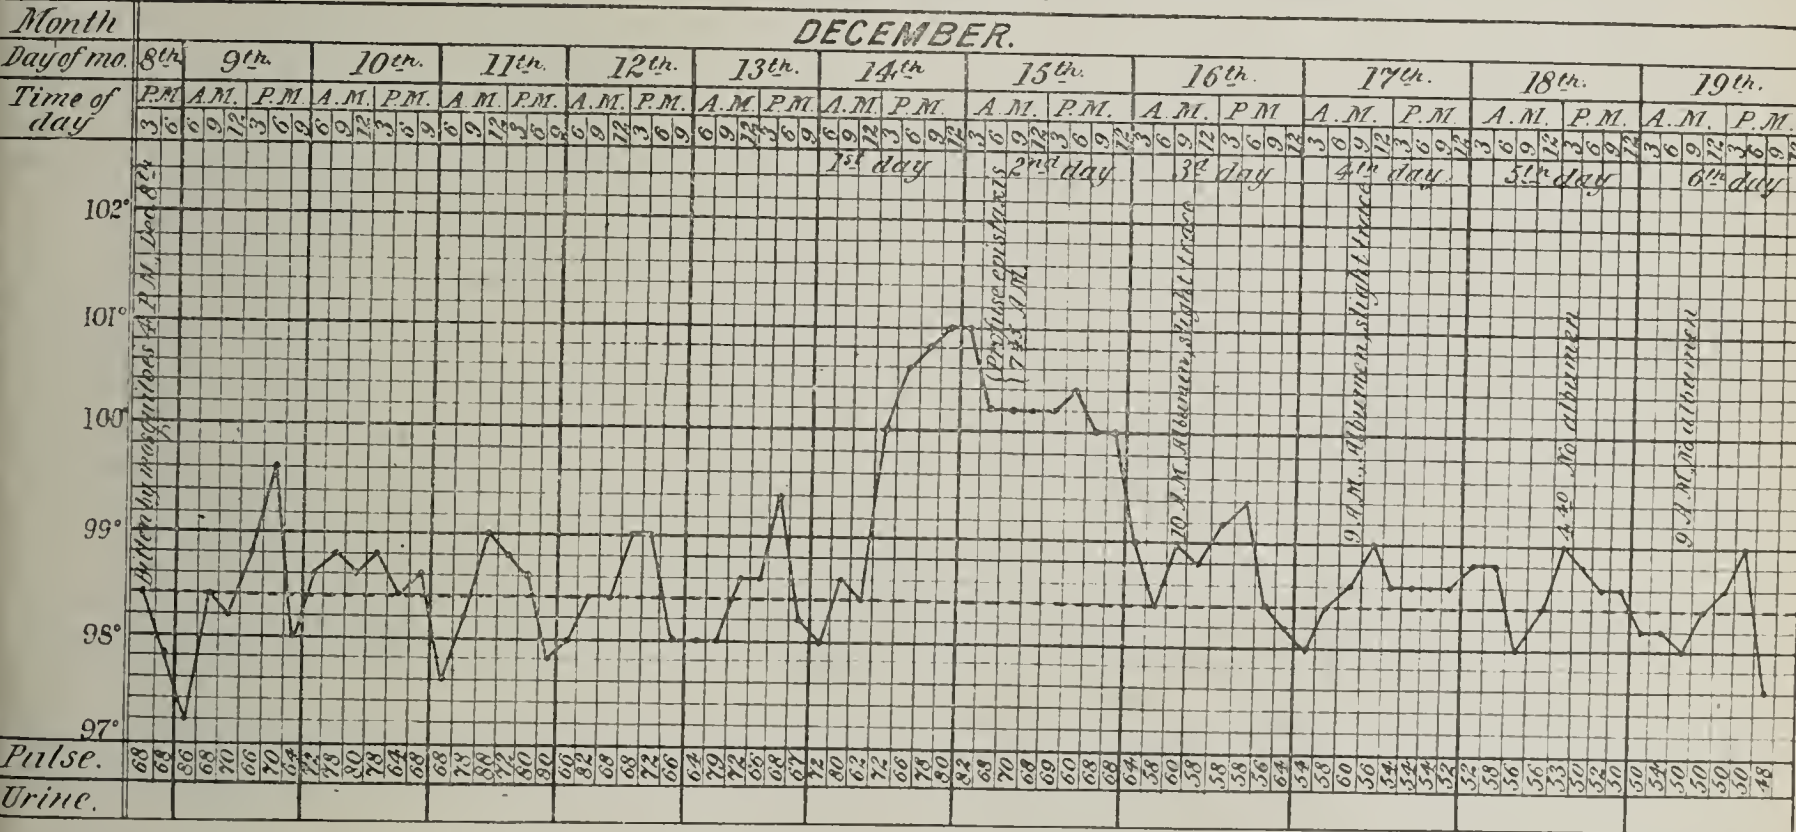 Month DECEMBER.
Day of mo. 8th 9th. 10th. 11th. 12th. 13th. 14th 15th. 16th. 17th. 18th. 19th.
Time of day P.M. A.M. P.M. A.M. P.M. A.M. P.M. A.M. P.M. A.M. P.M. A.M. P.M. A.M. P.M. A.M. P M A.M. P.M. A.M. P.M. A.M. P.M.
3 6 6 9 12 3 6 9 6 9 12 3 6 9 6 9 12 3 6 9 6 9 12 3 6 9 6 9 12 3 6 9 6 9 12 3 6 9 12 3 6 9 12 3 6 9 12 3 6 9 12 3 6 9 12 3 6 9 12 3 6 9 12 3 6 9 12 3 6 9 12 3 6 9 12 3 6 9
1st day 2nd day 3d day 4th day 5th day 6th day
Bitten by mosquitoes 4 P.M., Dec. 8th
Profuse epistaxis
7 A.M.
10 A.M. Albumen, slight trace
9 A.M., Albumen, slight trace
4 40 No albumen
9 A.M. No albumen
102°
101°
100°
99°
98°
97°
Pulse. 68 68 86 68 70 66 70 64 72 78 78 64 68 68 78 88 72 80 82 68 68 72 66 64 72 66 68 67 72 80 62 72 66 78 80 82 68 70 68 69 60 68 68 64 58 60 58 58 58 56 64 54 58 60 56 54 54 54 52 52 58 56 56 53 50 52 50 50 54 50 50 50 50 48
Urine.